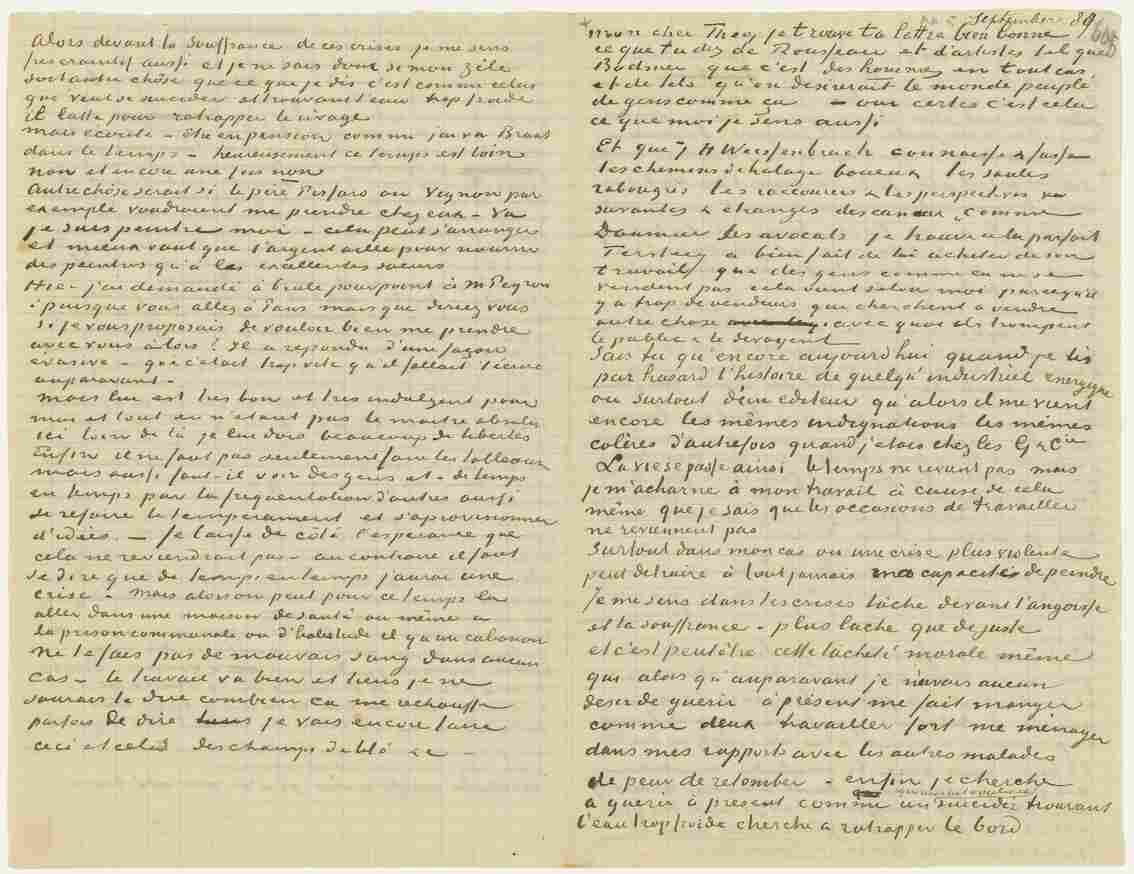 Alors devant la souffrance de ces crises je me sens
craintif aussi et je ne sais donc si mon zèle
soit autre chôse que ce que je dis c'est comme celui
que veut se suicider et trouvant l'eau trop froide
il lutte pour ratrapper le rivage
mais écoute – être en pension comme j'ai vu Braat
dans le temps – heureusement ce temps est loin
non et encore une fois non
Autre chôse serait si le père Pissaro ou Vignon par
exemple voudraient me prendre chez eux – Va
je suis peintre moi – cela peut s'arranger
et mieux vaut que l'argent aille pour nourrir
des peintres qu'à les excellentes soeurs
Hier j'ai demandé à brule pour point à M Peyron
: puisque vous allez à Paris mais que diriez vous
si je vous proposais de vouloir bien me prendre
avec vous alors? Il a repondu d'une façon
évasive – que c'etait trop vite qu'il fallait t'écrire
auparavant –
Mais lui est tres bon et tres indulgent pour
moi et tout en n'etant pas le maitre absolu
ici loin de là je lui dois beaucoup de libertés
Enfin il ne faut pas seulement faire les tableaux
mais aussi faut-il voir des gens et – de temps
en temps par la frequentation d'autres aussi
se refaire le temperament et s'approvisionner
d'idées. – Je laisse de coté l'esperance que
cela ne reviendrait pas – au contraire il faut
se dire que de temps en temps j'aurai une
crise – Mais alors on peut pour ce temps là
aller dans une maison de santé ou même à
la prison communale ou d'habitude il y a un cabanon
Ne te fais pas de mauvais sang dans aucun
cas – le travail va bien et tiens je ne
saurais te dire combien ça me rechauffe
parfois de dire je vais encore faire
ceci et cela des champs de blé &c –
September 89
605
mon cher Theo, je trouve ta lettre bien bonne
ce que tu dis de Rousseau et d'artistes tel que
Bodmer que c'est des hommes en tout cas
et de tels qu'on desirerait le monde peuplé
de gens comme ça – oui certes c'est cela
ce que moi je sens aussi
Et que J H Weissenbruch connaisse & fasse
les chemins de halage boueux les saules
rabougris les raccourcis & les perspectives
savantes & etranges des canaux „comme
Daumier les avocats je trouve cela parfait
Tersteeg a bien fait de lui acheter de son
travail, que des gens comme ça ne se
vendent pas cela vient selon moi parcequ'il
y a trop de vendeurs que cherchent à vendre
autre chose avec quoi ils trompent
le public & le devoyent
Sais tu qu'encore aujourdhui quand je lis
par hasard l'histoire de quelqu' industriel énergique
ou surtout d'un editeur qu'alors il me vient
encore les mêmes indignations les mêmes
colères d'autrefois quand j'etais chez les G & Cie
La vie se passe ainsi le temps ne revient pas mais
je m'acharne à mon travail à cause de cela
même que je sais que les occasions de travailler
ne reviennent pas
Surtout dans mon cas ou une crise plus violente
peut detruire à tout jamais ma capacité de peindre
Je me sens dans les crises lâche devant l'angoisse
et la souffrance – plus lache que de juste
et c'est peutêtre cette lacheté morale même
qui alors qu'auparavant je n'avais aucun
desir de guerir à present me fait manger
comme deux travailler fort me ménager
dans mes rapports avec les autres malades
de peur de retomber – enfin je cherche
à guerir à present comme un qui aurait voulu se suicider trouvant
l'eau trop froide cherche à ratrapper le bord